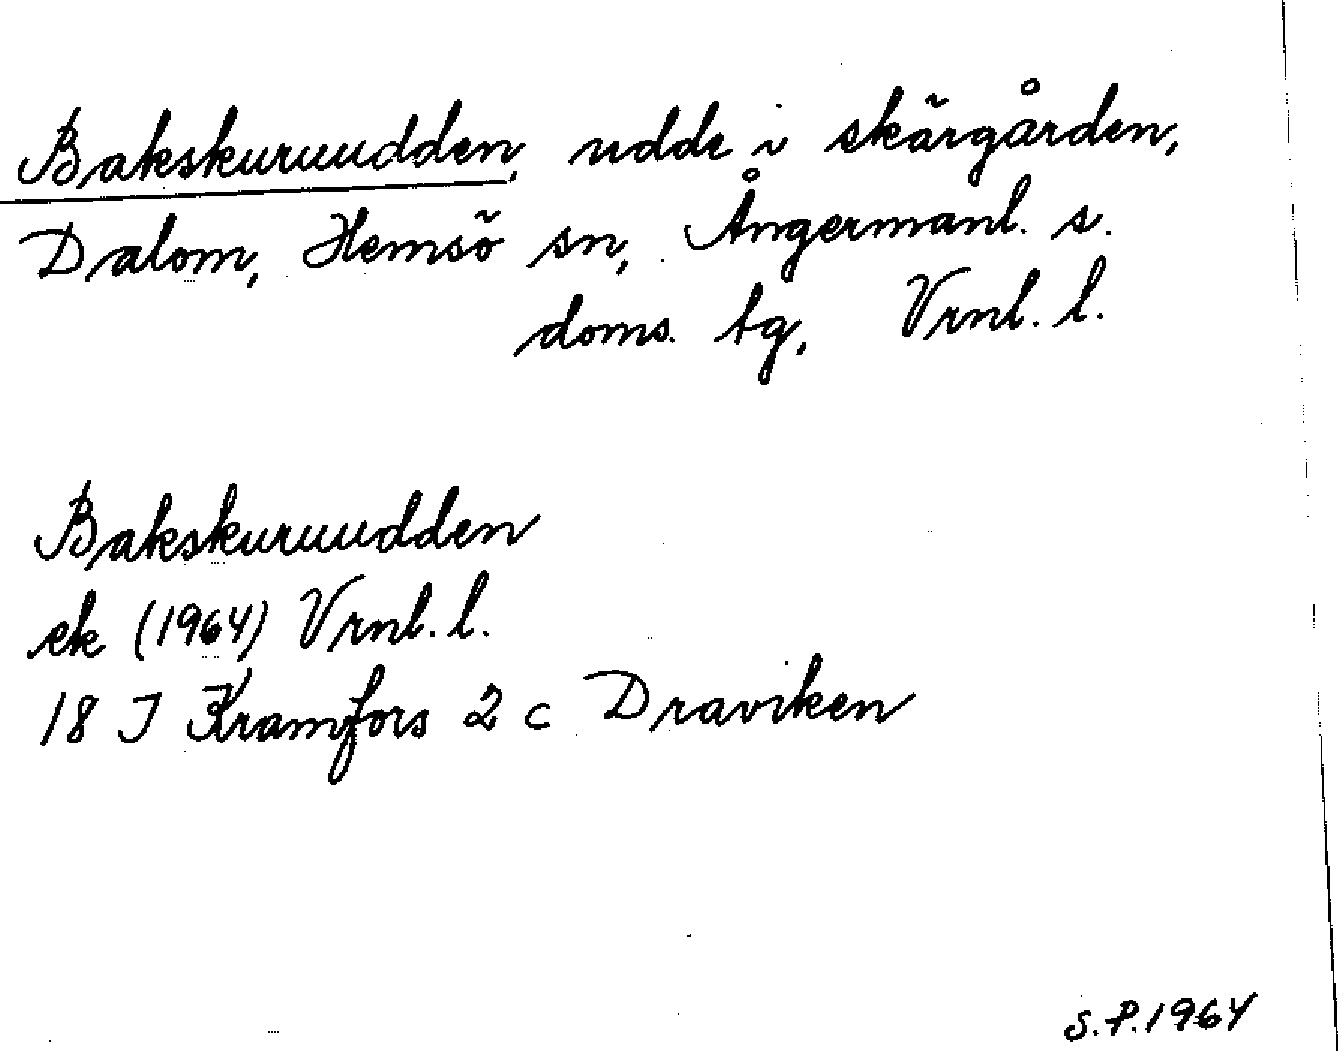 Bakskuruudden, udde i skärgården,
Dalom, Hemsö sn, Ångermanl. s.
doms. tg, Vrnl. l.
Bakskuruudden
ek (1964) Vrnl. l.
18 J Kramfors 2 c Draviken
S.P.1964